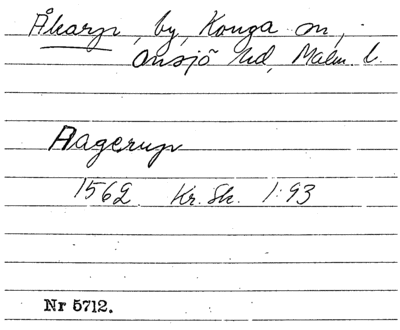 Åkarp, by, Konga sn,
Onsjö hd, Malm. l.
Aagerup
1562 Kr. Sk. 1:93
Nr 5712.